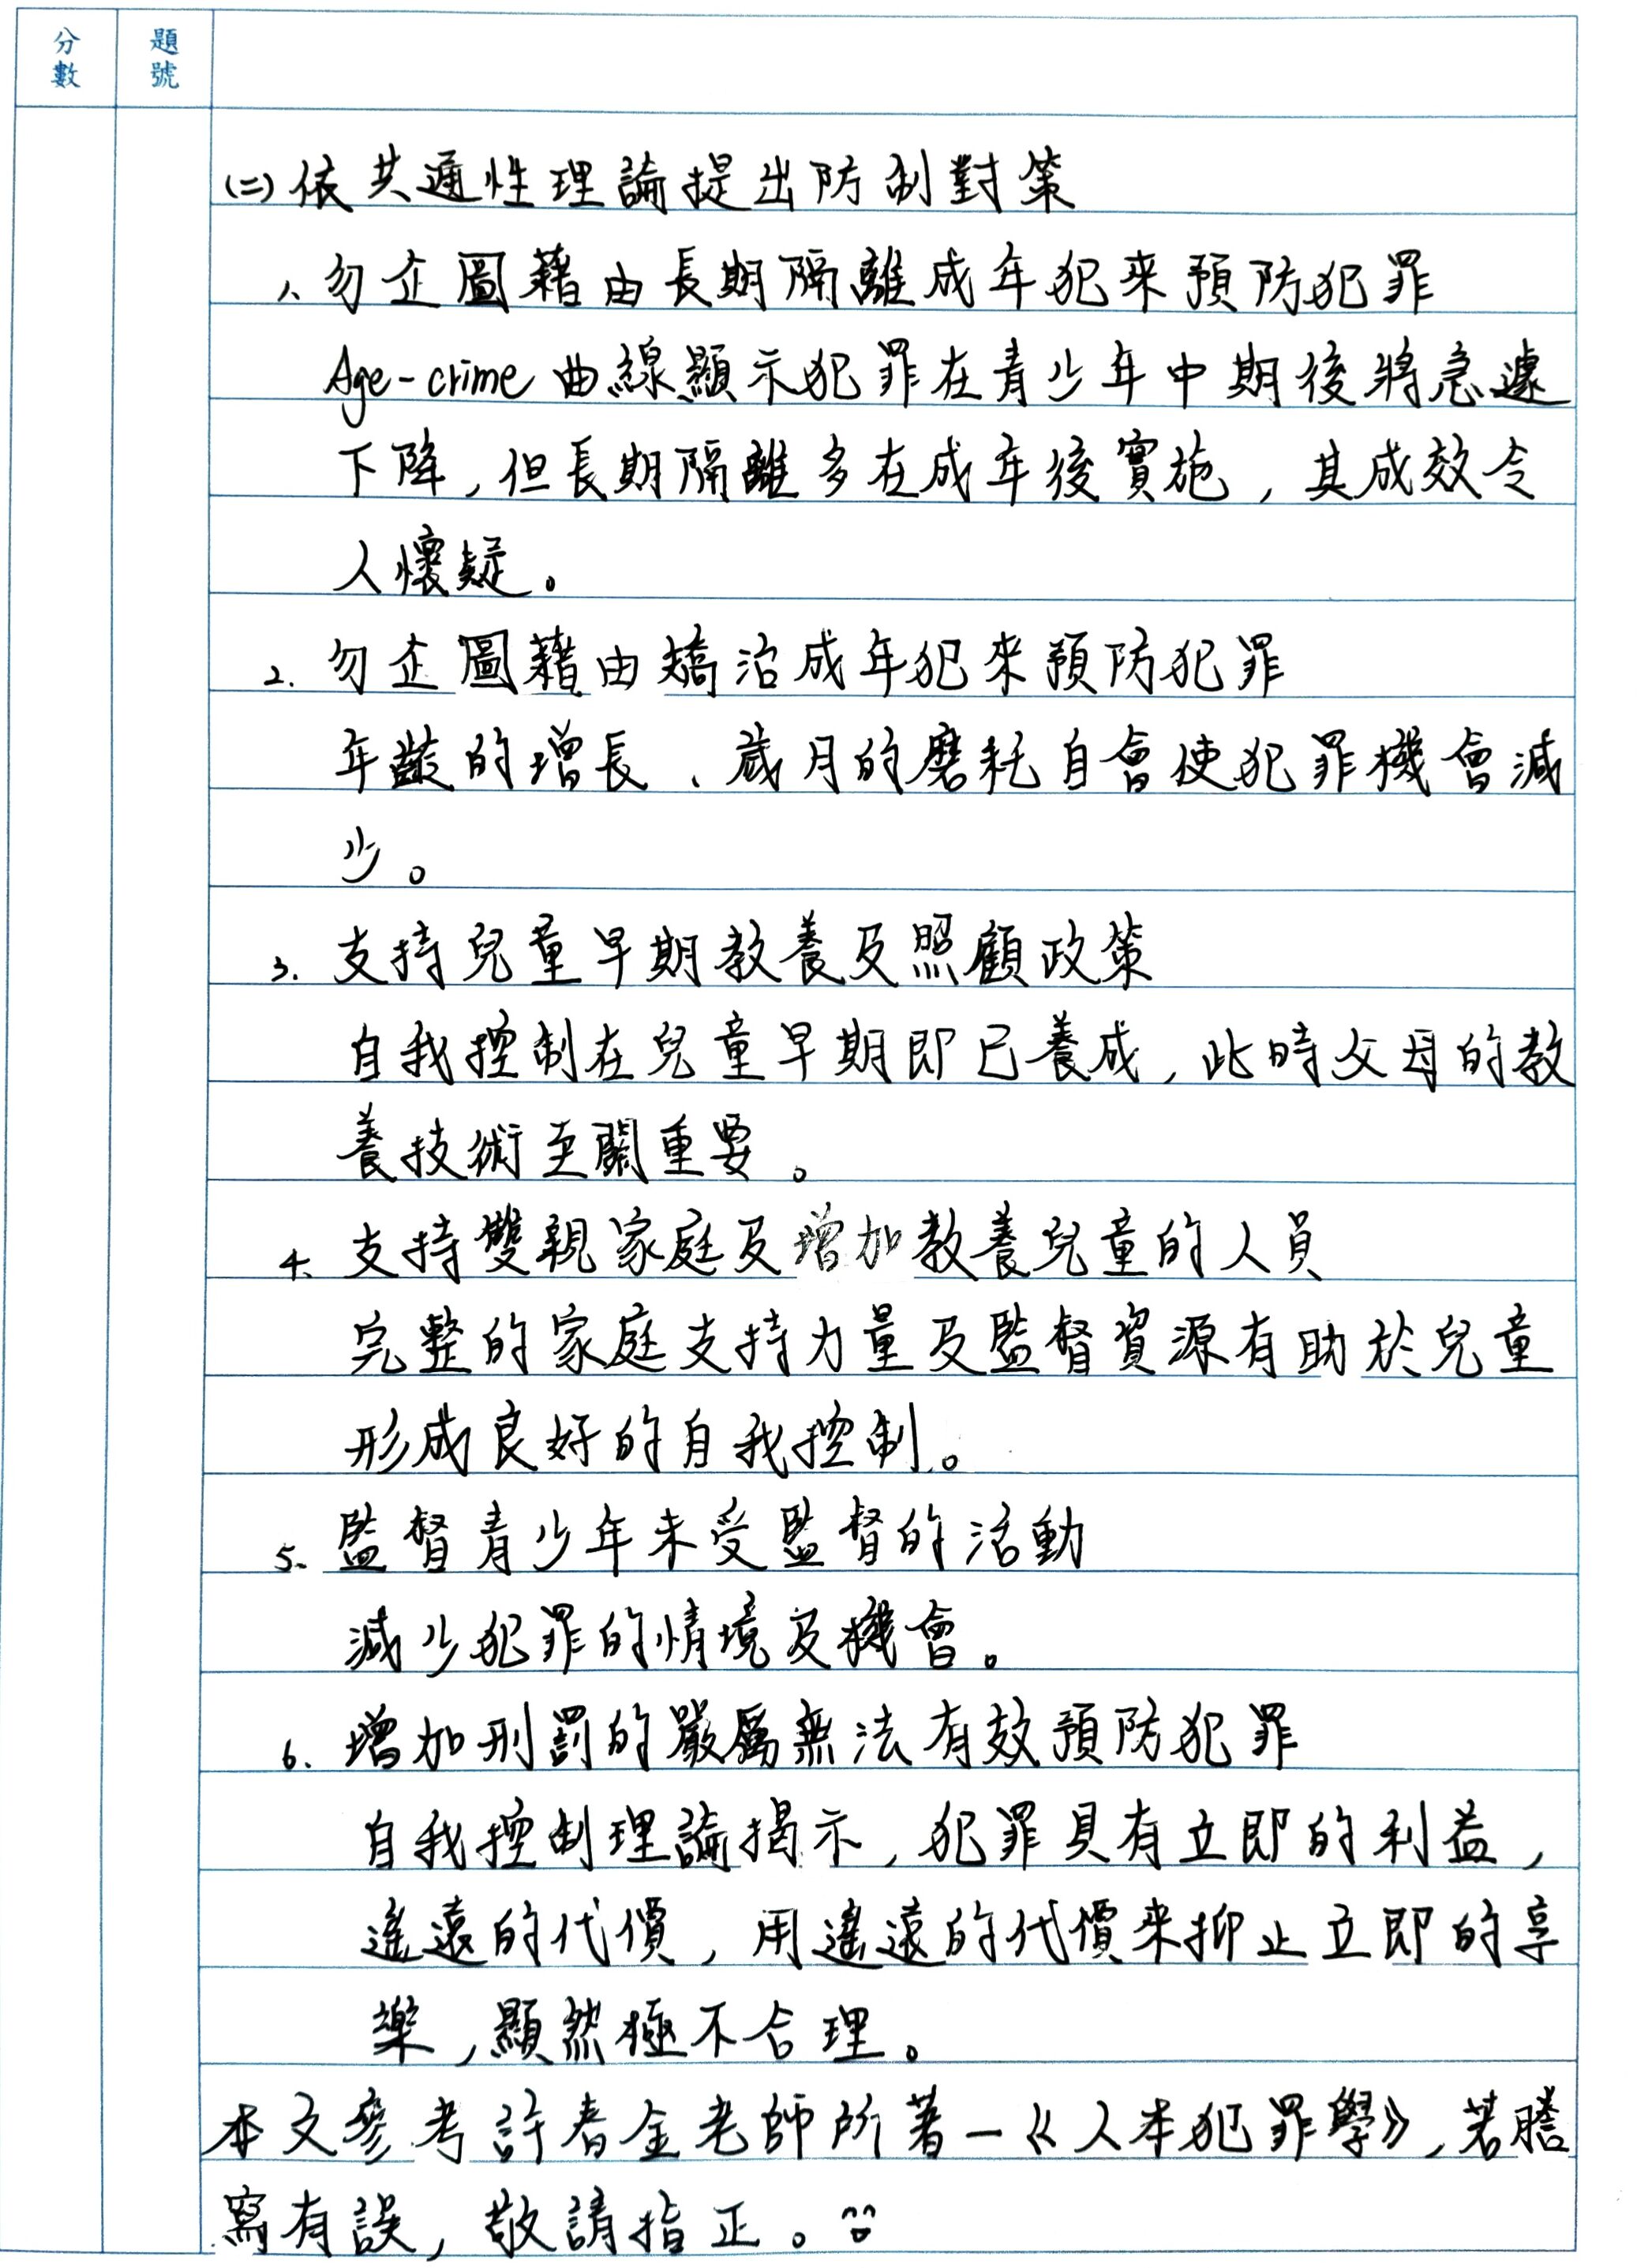 分數 題號
(二)依共通性理論提出防制對策
1、勿企圖藉由長期隔離成年犯來預防犯罪
Age-crime曲線顯示犯罪在青少年中期後將急遽
下降,但長期隔離多在成年後實施,其成效令
人懷疑。
2.勿企圖藉由矯治成年犯來預防犯罪
年齡的增長、歲月的磨耗自會使犯罪機會減
少。
3.支持兒童早期教養及照顧政策
自我控制在兒童早期即已養成,此時父母的教
養技術至關重要。
4、支持雙親家庭及增加教養兒童的人員
完整的家庭支持力量及監督資源有助於兒童
形成良好的自我控制。
5、監督青少年未受監督的活動
減少犯罪的情境及機會。
6.增加刑罰的嚴厲無法有效預防犯罪
自我控制理論揭示,犯罪具有立即的利益,
遙遠的代價,用遙遠的代價來抑止立即的享
樂,顯然極不合理。
本文參考許春金老師所著—《人本犯罪學》,若謄
寫有誤,敬請指正。